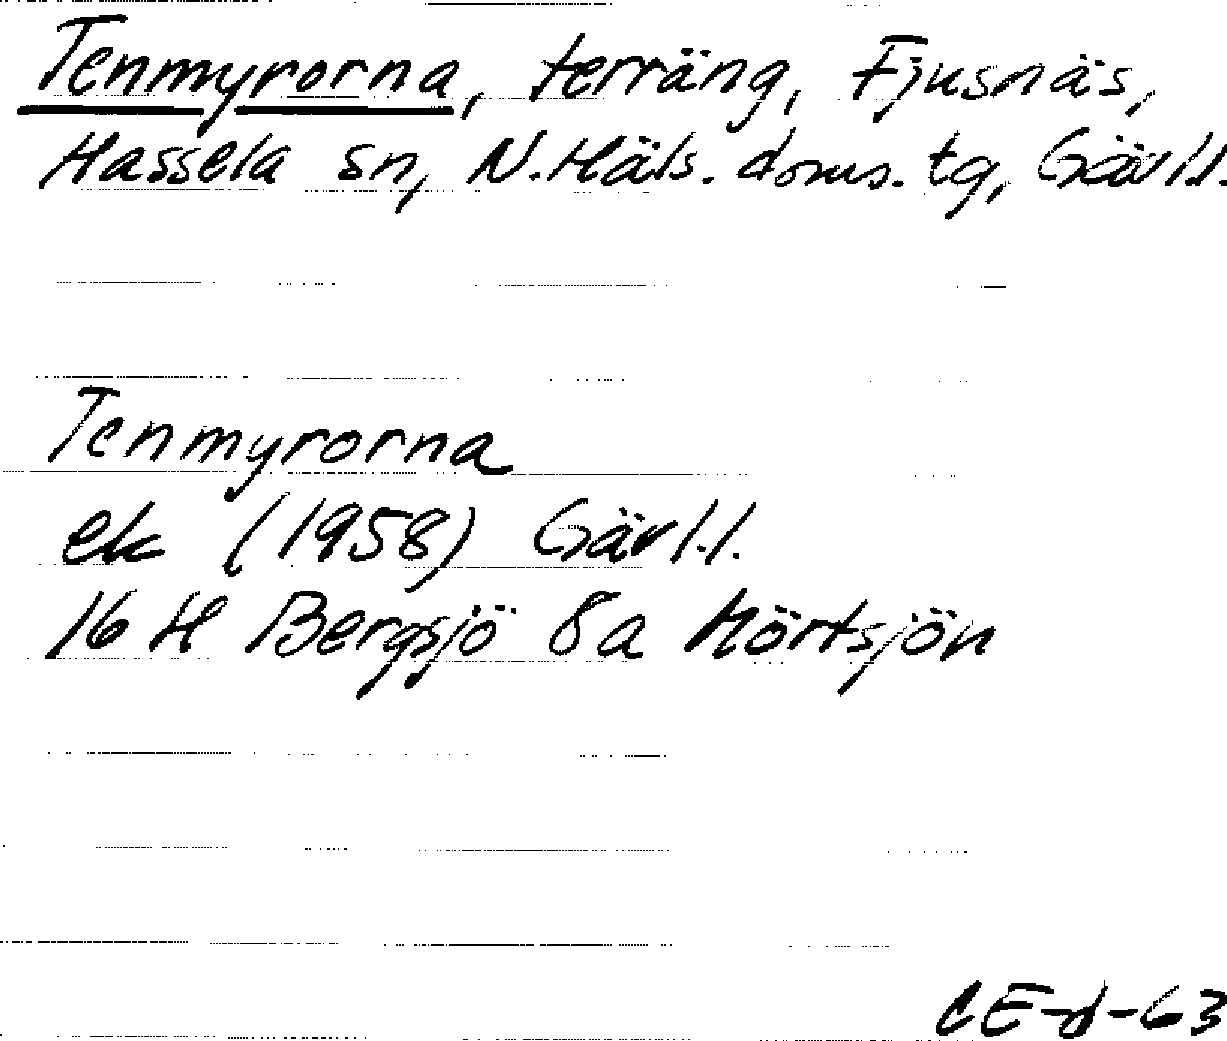 Tenmyrorna, terräng, Fjusnäs,
Hassela sn, N.Häls. doms. tg, Gävl.l.
Tenmyrorna
ek (1958) Gävl.l.
16 H Bergsjö 8a Mörtsjön
CE-d-63